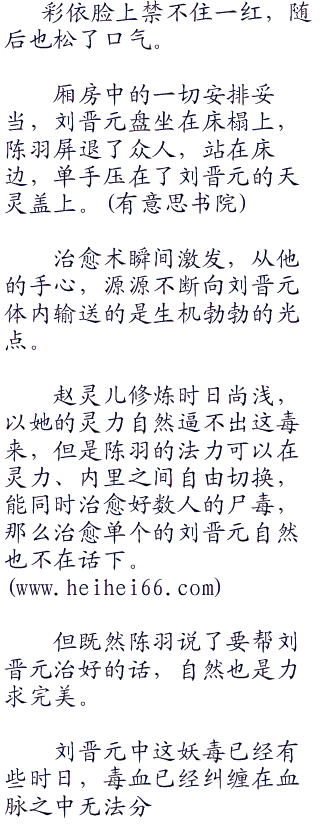 彩依脸上禁不住一红，随
后也松了口气。
厢房中的一切安排妥
当，刘晋元盘坐在床榻上，
陈羽屏退了众人，站在床
边，单手压在了刘晋元的天
灵盖上。(有意思书院)
治愈术瞬间激发，从他
的手心，源源不断向刘晋元
体内输送的是生机勃勃的光
点。
赵灵儿修炼时日尚浅，
以她的灵力自然逼不出这毒
来，但是陈羽的法力可以在
灵力、内里之间自由切换，
能同时治愈好数人的尸毒，
那么治愈单个的刘晋元自然
也不在话下。
(www.heihei66.com)
但既然陈羽说了要帮刘
晋元治好的话，自然也是力
求完美。
刘晋元中这妖毒已经有
些时日，毒血已经纠缠在血
脉之中无法分